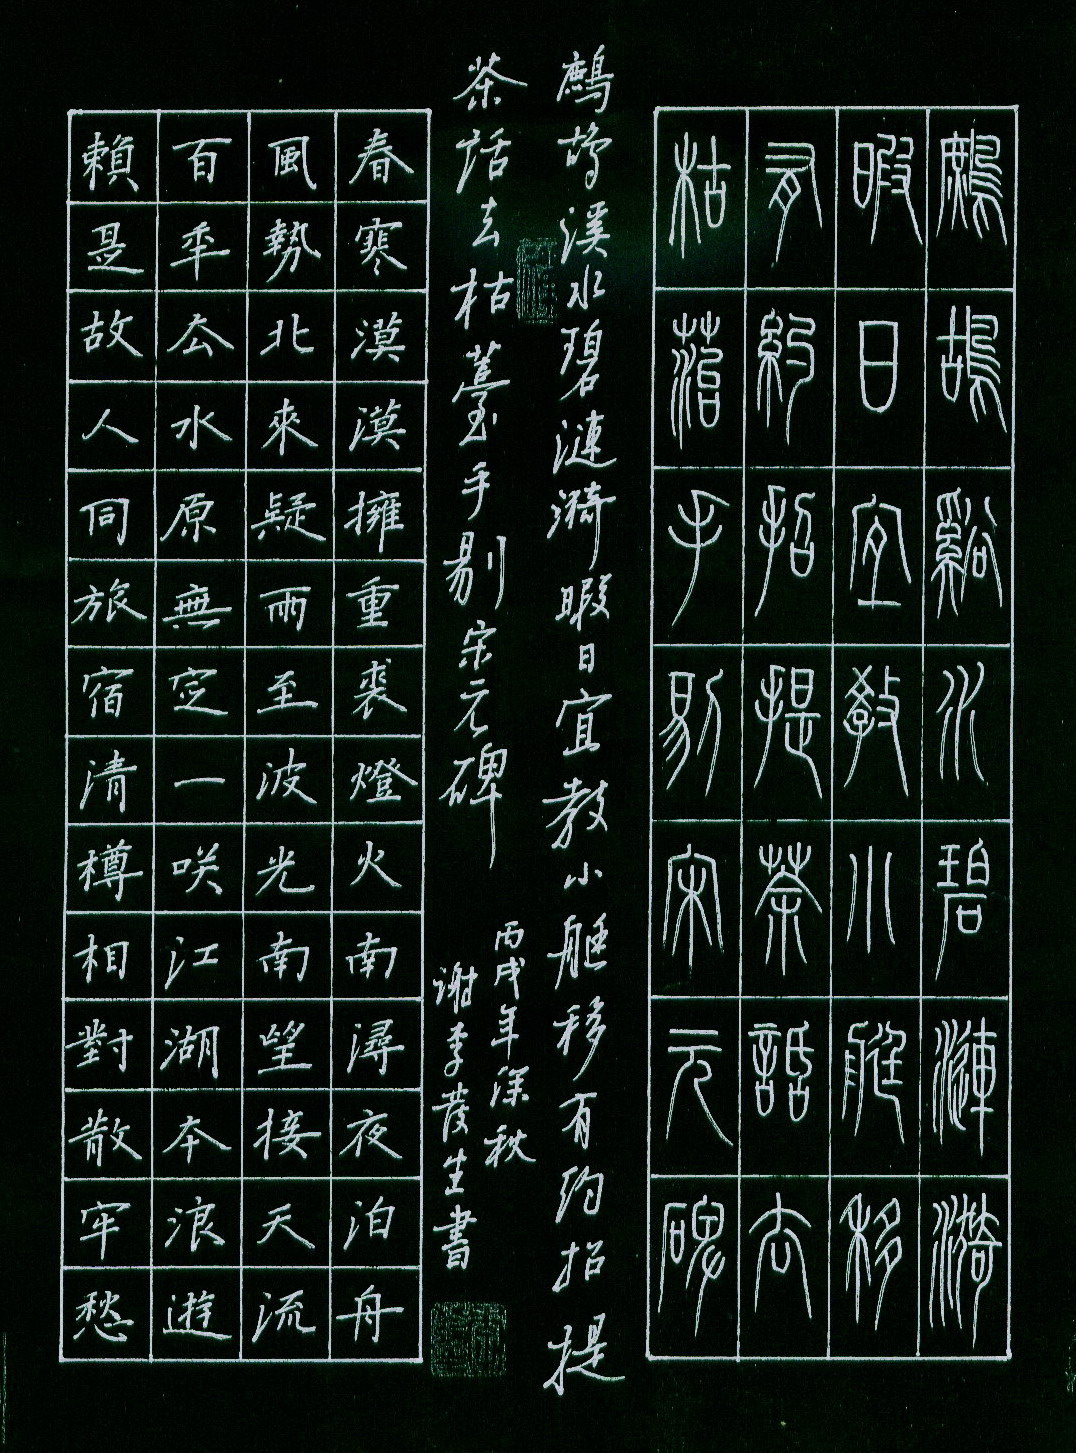 鷓鴣谿水碧漣漪
暇日宜教小艇移
有約招提茶話去
枯菭手剔宋元碑
鷓鴣溪水碧漣漪暇日宜教小艇移有約招提
茶話去枯薹手剔宋元碑
丙戌年深秋
謝李生書
春寒漠漠擁重裘燈火南潯夜泊舟
風勢北來疑雨至波光南望接天流
百年云水原無定一咲江湖本浪遊
賴是故人同旅宿清樽相對散牢愁